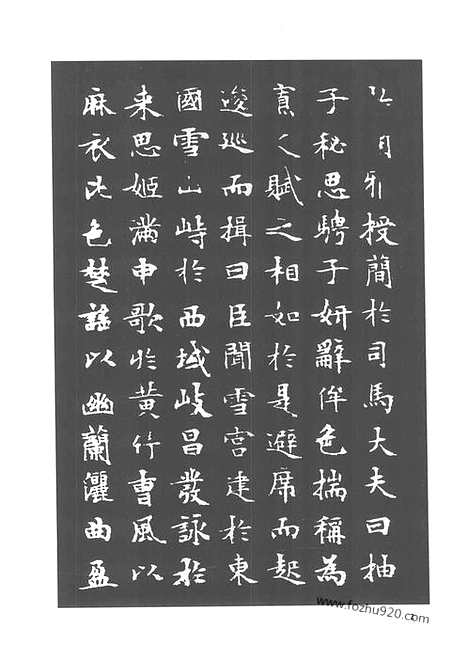 授簡於司馬大夫曰抽
子秘思騁子妍辭侔色揣稱為
寡人賦之相如於是避席而起
逡巡而揖曰臣聞雪宮建於東
國雪山峙於西域岐昌發詠於
来思姬滿申歌於黃竹曹風以
麻衣比色楚謠以幽蘭儷曲盈
www.fozhu920.com